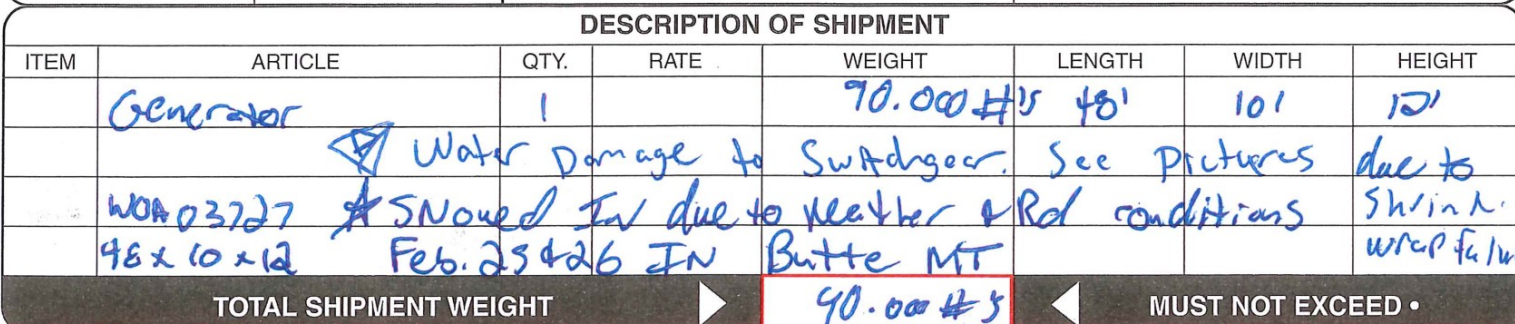 DESCRIPTION OF SHIPMENT
ITEM ARTICLE QTY. RATE WEIGHT LENGTH WIDTH HEIGHT
Generator 1 90.000 #'s 48' 10' 12'
Water Damage to Switchgear. See Pictures due to
WOA03727 SNowed IN due to Weather & Rd conditions Shrink
48 x 10 x 12 Feb. 25 & 26 IN Butte MT wrap
TOTAL SHIPMENT WEIGHT 90.000 #'s MUST NOT EXCEED •